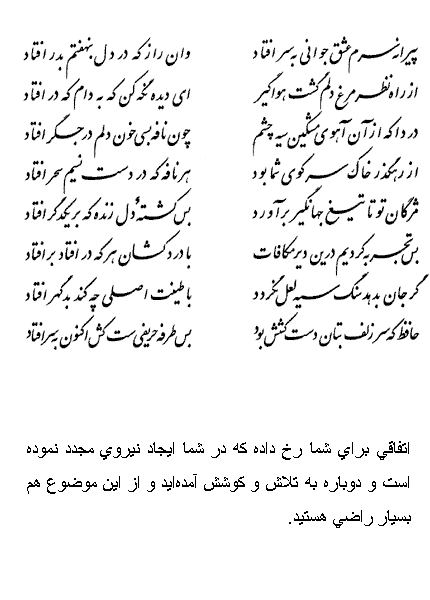 پیرانه سرم عشق جوانی به سر افتاد وان راز که در دل بنهفتم بدر افتاد
از راه نظر مرغ دلم گشت هواگیر ای دیده نگه کن که به دام که در افتاد
دردا که از آن آهوی مشکین سیه چشم چون نافه بسی خون دلم در جگر افتاد
از رهگذر خاک سر کوی شما بود هر نافه که در دست نسیم سحر افتاد
مژگان تو تا تیغ جهانگیر برآورد بس کشتهٔ دل زنده که بر یکدگر افتاد
بس تجربه کردیم درین دیر مکافات با دردکشان هر که در افتاد بر افتاد
گر جان بدهد سنگ سیه لعل نگردد با طینت اصلی چه کند بدگهر افتاد
حافظ که سر زلف بتان دست کشش بود بس طرفه حریفی‌ست کش اکنون به سر افتاد
اتفاقي براي شما رخ داده كه در شما ايجاد نيروي مجدد نموده
است و دوباره به تلاش و كوشش آمده‌ايد و از اين موضوع هم
بسيار راضي هستيد.